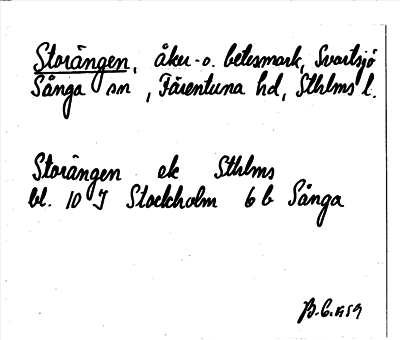 Storängen, åker- o. betesmark, Svartsjö
Sånga sn, Färentuna hd, Sthlms l.
Storängen ek Sthlms
bl. 10 I Stockholm 6 b Sånga
B. G. 1959